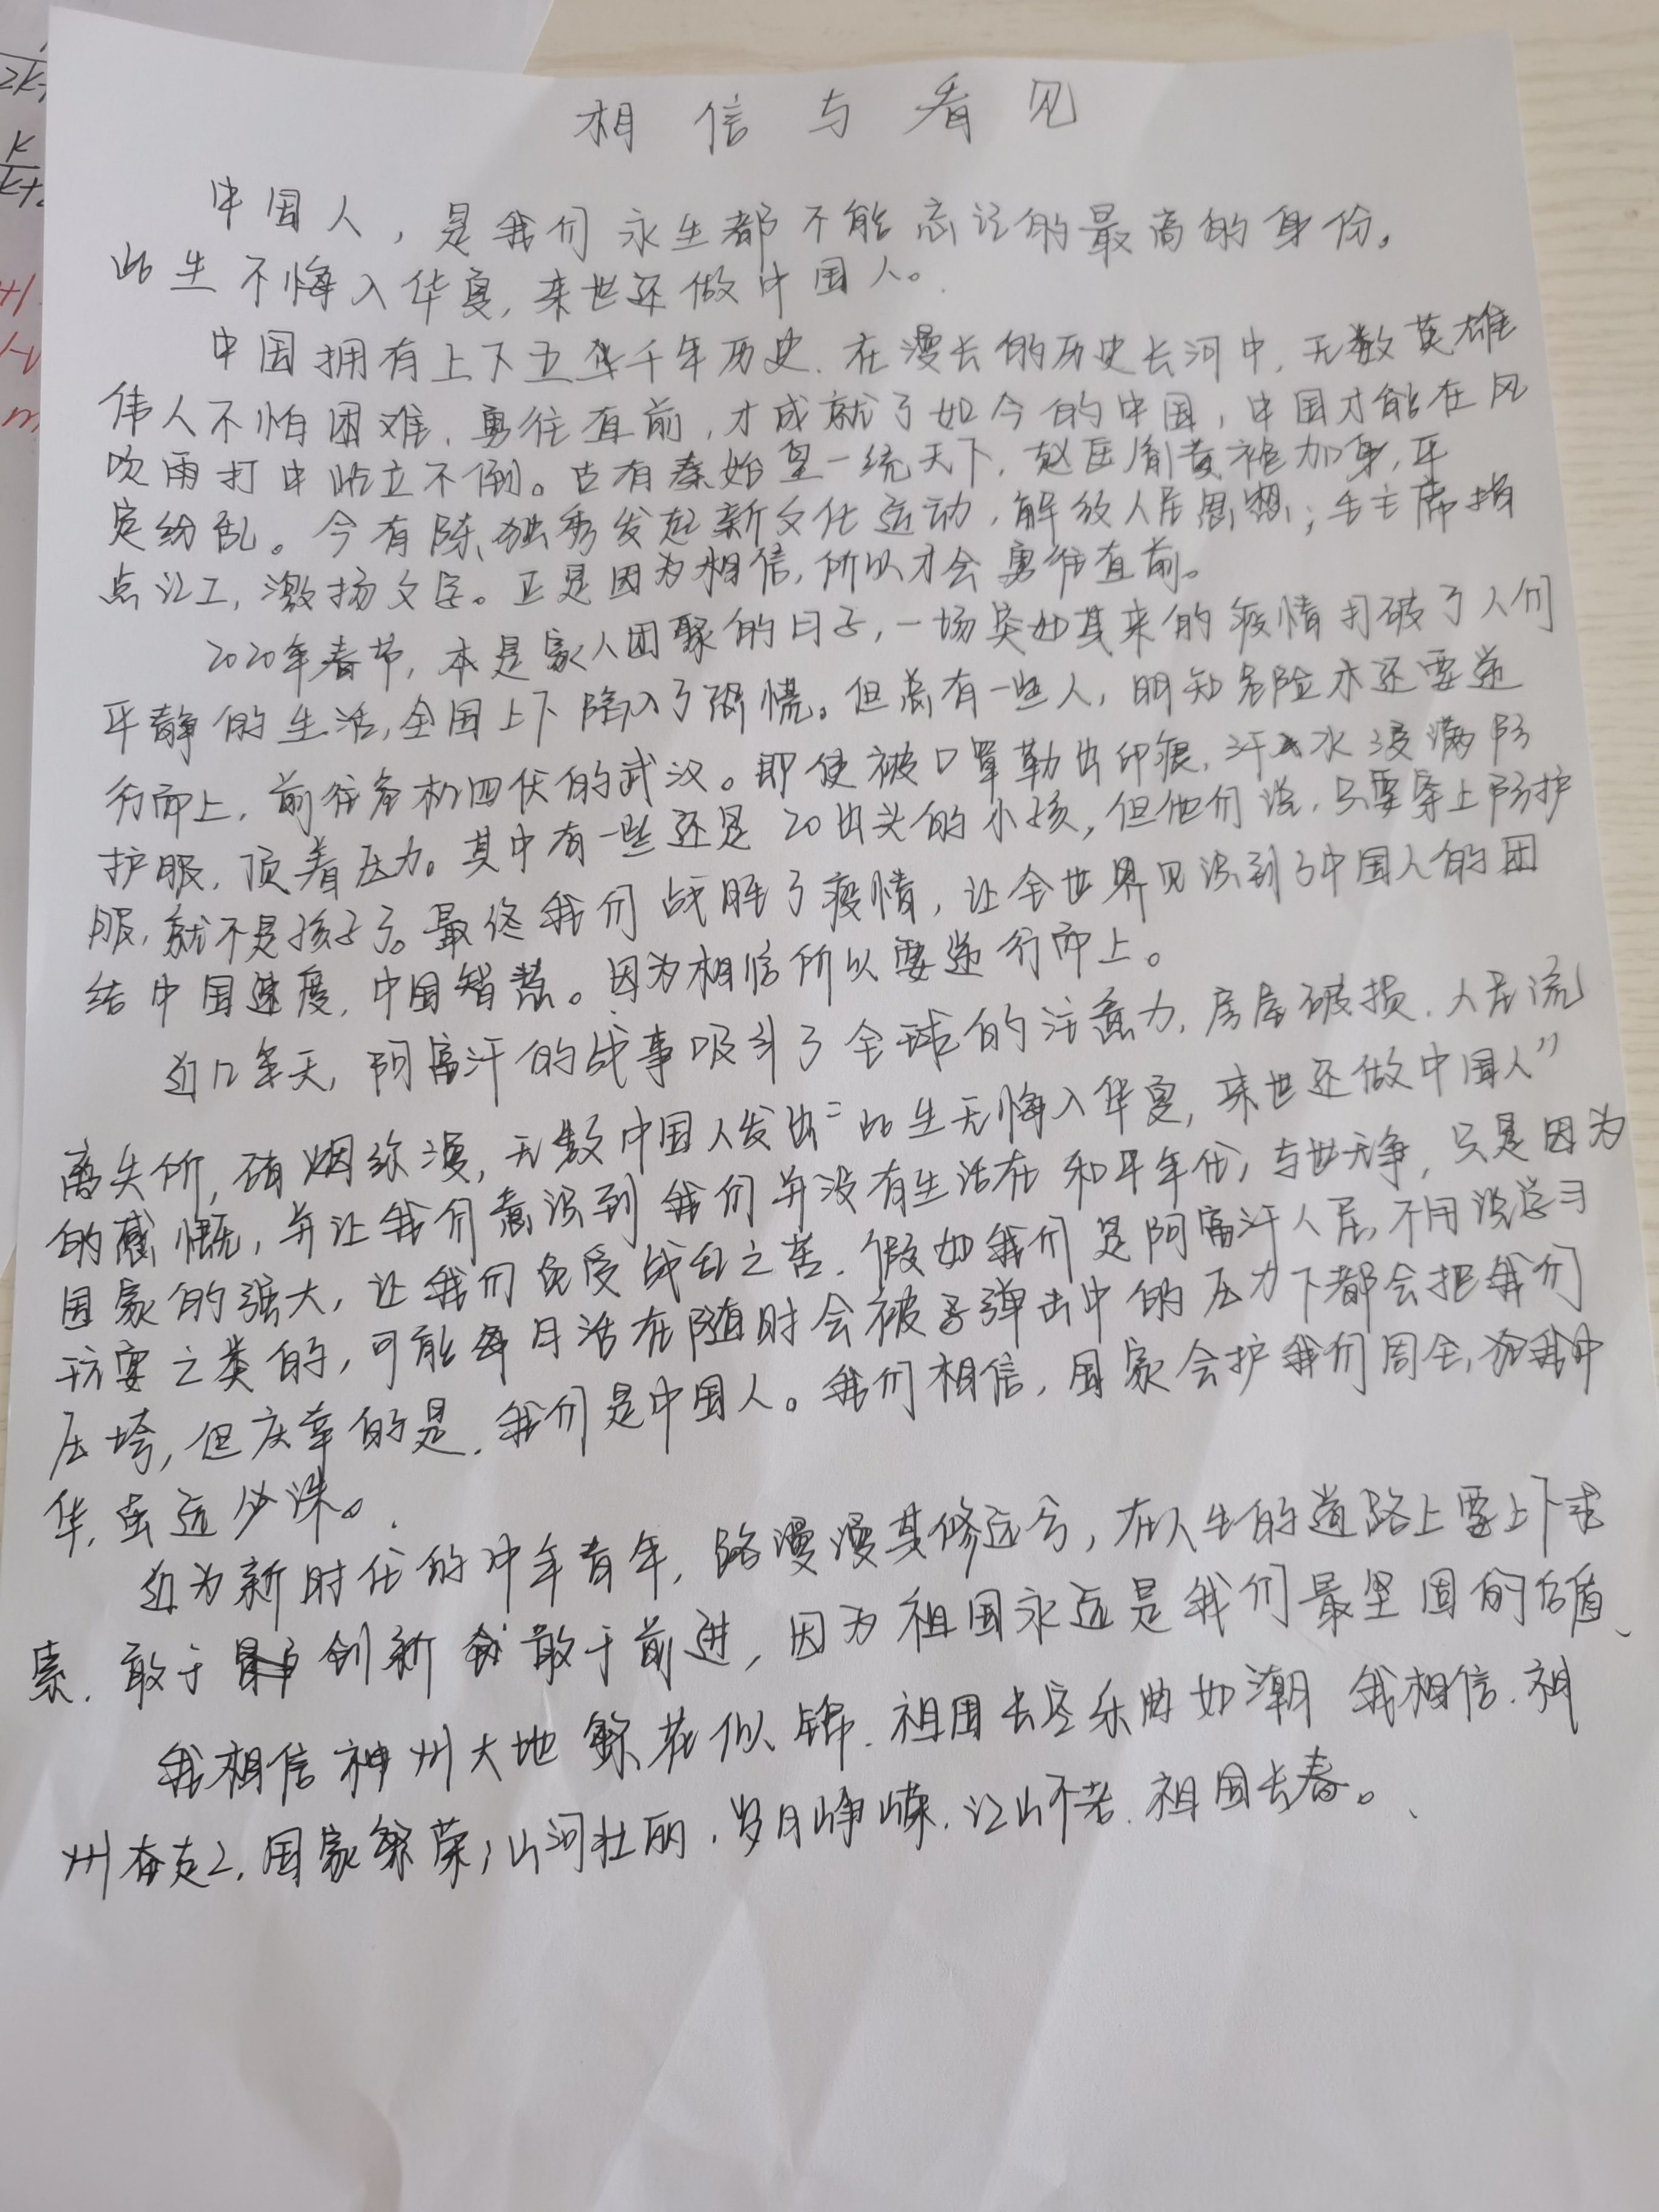 相信与看见
中国人，是我们永生都不能忘记的最高的身份。
此生不悔入华夏，来世还做中国人。
中国拥有上下五千年历史，在漫长的历史长河中，无数英雄
伟人不怕困难，勇往直前，才成就了如今的中国，中国才能在风
吹雨打中屹立不倒。古有秦始皇一统天下，赵匡胤黄袍加身，平
定纷乱。今有陈独秀发起新文化运动，解放人民思想；毛主席指
点江工，激扬文字。正是因为相信，所以才会勇往直前。
2020年春节，本是家人团聚的日子，一场突如其来的疫情打破了人们
平静的生活，全国上下陷入了恐慌。但总有一些人，明知危险亦还要逆
行而上，前往危机四伏的武汉。即使被口罩勒出印痕，汗水浸满防
护服，顶着压力。其中有一些还是20出头的小孩，但他们说，只要穿上防护
服，就不是孩子了。最终我们战胜了疫情，让全世界见识到了中国人的团
结中国速度，中国智慧。因为相信所以要逆行而上。
近几天，阿富汗的战事吸引了全球的注意力，房屋破损，人民流
离失所，硝烟弥漫，无数中国人发出"此生无悔入华夏，来世还做中国人"
的感慨，并让我们意识到我们并没有生活在和平年代，与世无争，只是因为
国家的强大，让我们免受战乱之苦，假如我们是阿富汗人民，不用说学习
玩耍之类的，可能每日活在随时会被子弹击中的压力下都会把我们
压垮，但庆幸的是，我们是中国人。我们相信，国家会护我们周全，犯我中
华，虽远必诛。
近为新时代的中年青年，路漫漫其修远兮，在人生的道路上要上下求
索，敢于创新敢于前进，因为祖国永远是我们最坚固的后盾、
我相信神州大地繁花似锦，祖国长空乐曲如潮 我相信，神
州奋起，国家繁荣；山河壮丽，岁月峥嵘，江山不老，祖国长春。